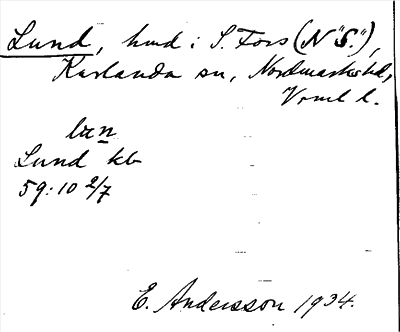 Lund, hmd i S. Fors (N "S."),
Karlanda sn, Nordmarks hd,
Vrml l.
lun
Lund kb
59:10 2/7
E. Andersson 1934.